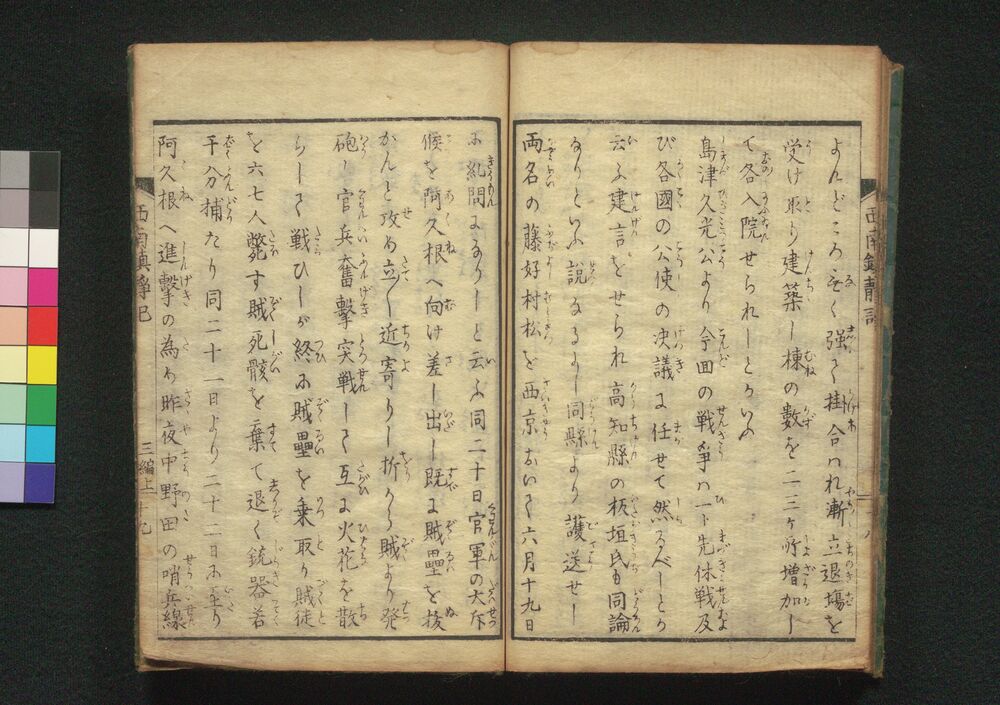 よんどころなく強く挂合はれ漸々立退場を
受け取り建築し棟の数を二三ヶ所増加し
て各入院せられしとかいふ
島津久光公より今回の戦争ハ一ト先休戦及
び各國の公使の决議に任せて然るべしとか
云ふ建言をせられ高知縣の板垣氏も同論
なりといふ説なるよし同縣より護送せし
両名の藤好村松を西京おいて六月十九日
西南鎮静記
に糺問になりしと云ふ同二十日官軍の大斥
候を阿久根へ向け差し出し既に賊壘を抜
かんと攻め立し近寄りし折から賊より発
砲し官兵奮擊突戦して互に火花を散
らして戦ひしが終に賊壘を乗取り賊徒
を六七人斃す賊死骸を棄て退く銃器若
干分捕たり同二十一日より二十二日に至り
阿久根へ進擊の為め昨夜中野田の哨兵線
三編上
十九